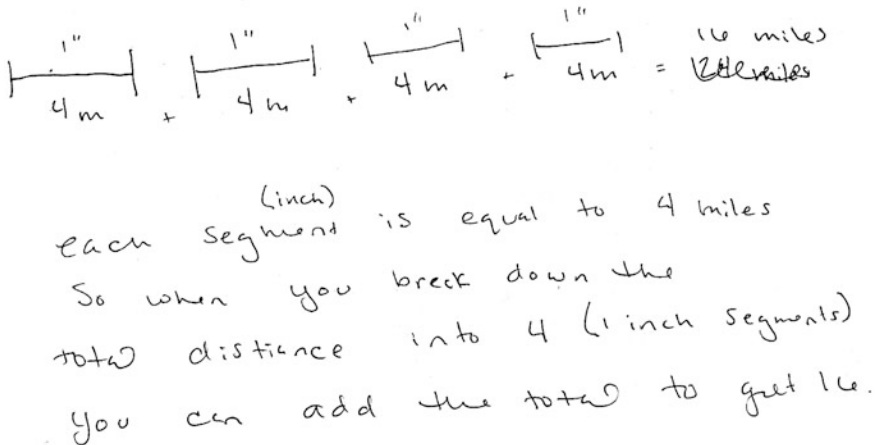 1" 1" 1" 1" 16 miles
4 m + 4 m + 4 m + 4 m = miles
(inch)
each segment is equal to 4 miles
So when you breck down the
total distiance into 4 (1 inch segments)
you can add the total to get 16.